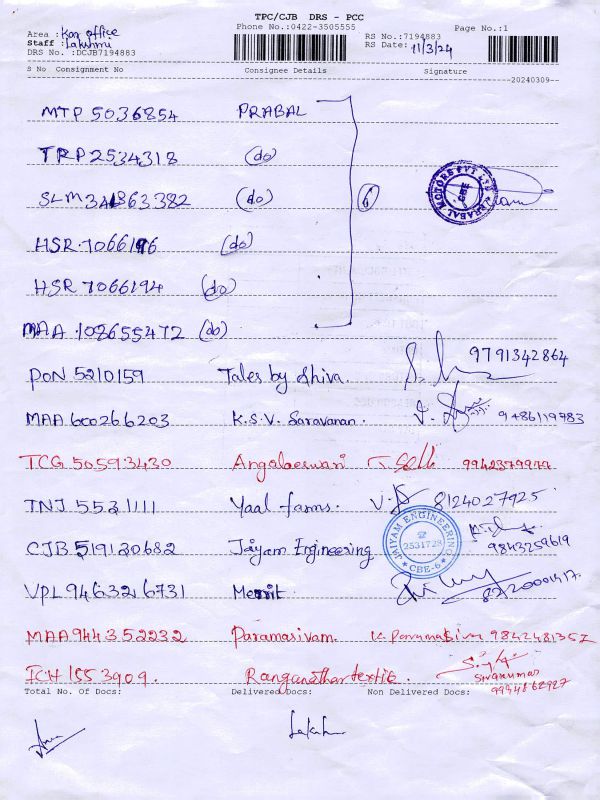 TPC/CJB DRS - PCC
Phone No.:0422-3505555
Page No.:1
Area : Kag office
RS No.:7194883
Staff : Lakshmi
RS Date: 11/3/24
DRS No. :DCJB7194883
S No Consignment No Consignee Details Signature
--20240309--
MTP 5036854 PRABAL
TRP 2534318 (do)
SLM 341863382 (do) 6
HSR 7066196 (do)
HSR 7066194 (do)
MAA 108655472 (do)
PON 5210159 Tales by Shiva. 9791342864
MAA 600266203 K.S.V. Saravanan. 9486119783
TCG 50593430 Angalaeswari 9942379979
TNJ 5521111 Yaal farms. 8124027925
CJB 519120682 Jaiyam Engineering 9843259619
JAIYAM ENGINEERING 2531728 CBE-6
VPL 946326731 Merrit
MAA 944352232 Paramasivam. K. Paramasivm 9842481352
ICH 1553909. Ranganathar textile. Sivakumar
9994862927
Total No. Of Docs: Delivered Docs: Non Delivered Docs: